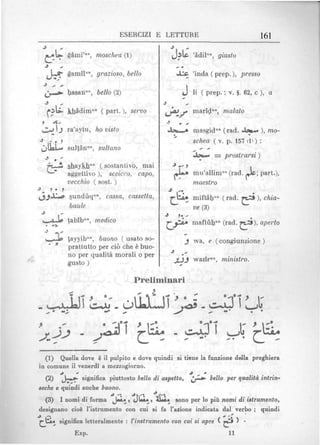 ESERCIZI E LETTURE 161
جَامِعٌ ǧâmiʿᵘⁿ, moschea (1)
جَمِيلٌ ǧamîlᵘⁿ, grazioso, bello
حَسَنٌ ḥasanᵘⁿ, bello (2)
خَادِمٌ khâdimᵘⁿ ( part. ), servo
رَأَيْتُ ra'aytu, ho visto
سُلْطَانٌ sulṭânᵘⁿ, sultano
شَيْخٌ shaykhᵘⁿ ( sostantivo, mai
aggettivo ), sceicco, capo,
vecchio ( sost. )
صُنْدُوقٌ ṣundûqᵘⁿ, cassa, cassetta,
baule
طَبِيبٌ ṭabîbᵘⁿ, medico
طَيِّبٌ ṭayyibᵘⁿ, buono ( usato so-
prattutto per ciò che è buo-
no per qualità morali o per
gusto )
عَادِلٌ ʿâdilᵘⁿ, giusto
عِنْدَ ʿinda ( prep. ), presso
لِ li ( prep. ; v. § 62, c ), a
مَرِيضٌ marîḍᵘⁿ, malato
مَسْجِدٌ masgidᵘⁿ (rad. سجد ), mo-
schea ( v. p. 157 ⁽¹⁾ :
سجد = prostrarsi )
مُعَلِّمٌ muʿallimᵘⁿ (rad. علم; part.),
maestro
مِفْتَاحٌ miftâḥᵘⁿ ( rad. فتح ), chia-
ve (3)
مَفْتُوحٌ maftûḥᵘⁿ (rad. فتح), aperto
وَ wa, e ( congiunzione )
وَزِيرٌ wazîrᵘⁿ, ministro.
Preliminari
(1) Quella dove è il pulpito e dove quindi si tiene la funzione della preghiera
in comune il venerdì a mezzogiorno.
(2) جَمِيلٌ significa piuttosto bello di aspetto, حَسَنٌ bello per qualità intrin-
seche e quindi anche buono.
(3) I nomi di forma sono per lo più nomi di istrumento,
designano cioè l'istrumento con cui si fa l'azione indicata dal verbo ; quindi
مِفْتَاحٌ significa letteralmente : l'instrumento con cui si apre ( فتح ) .
Esp. 11